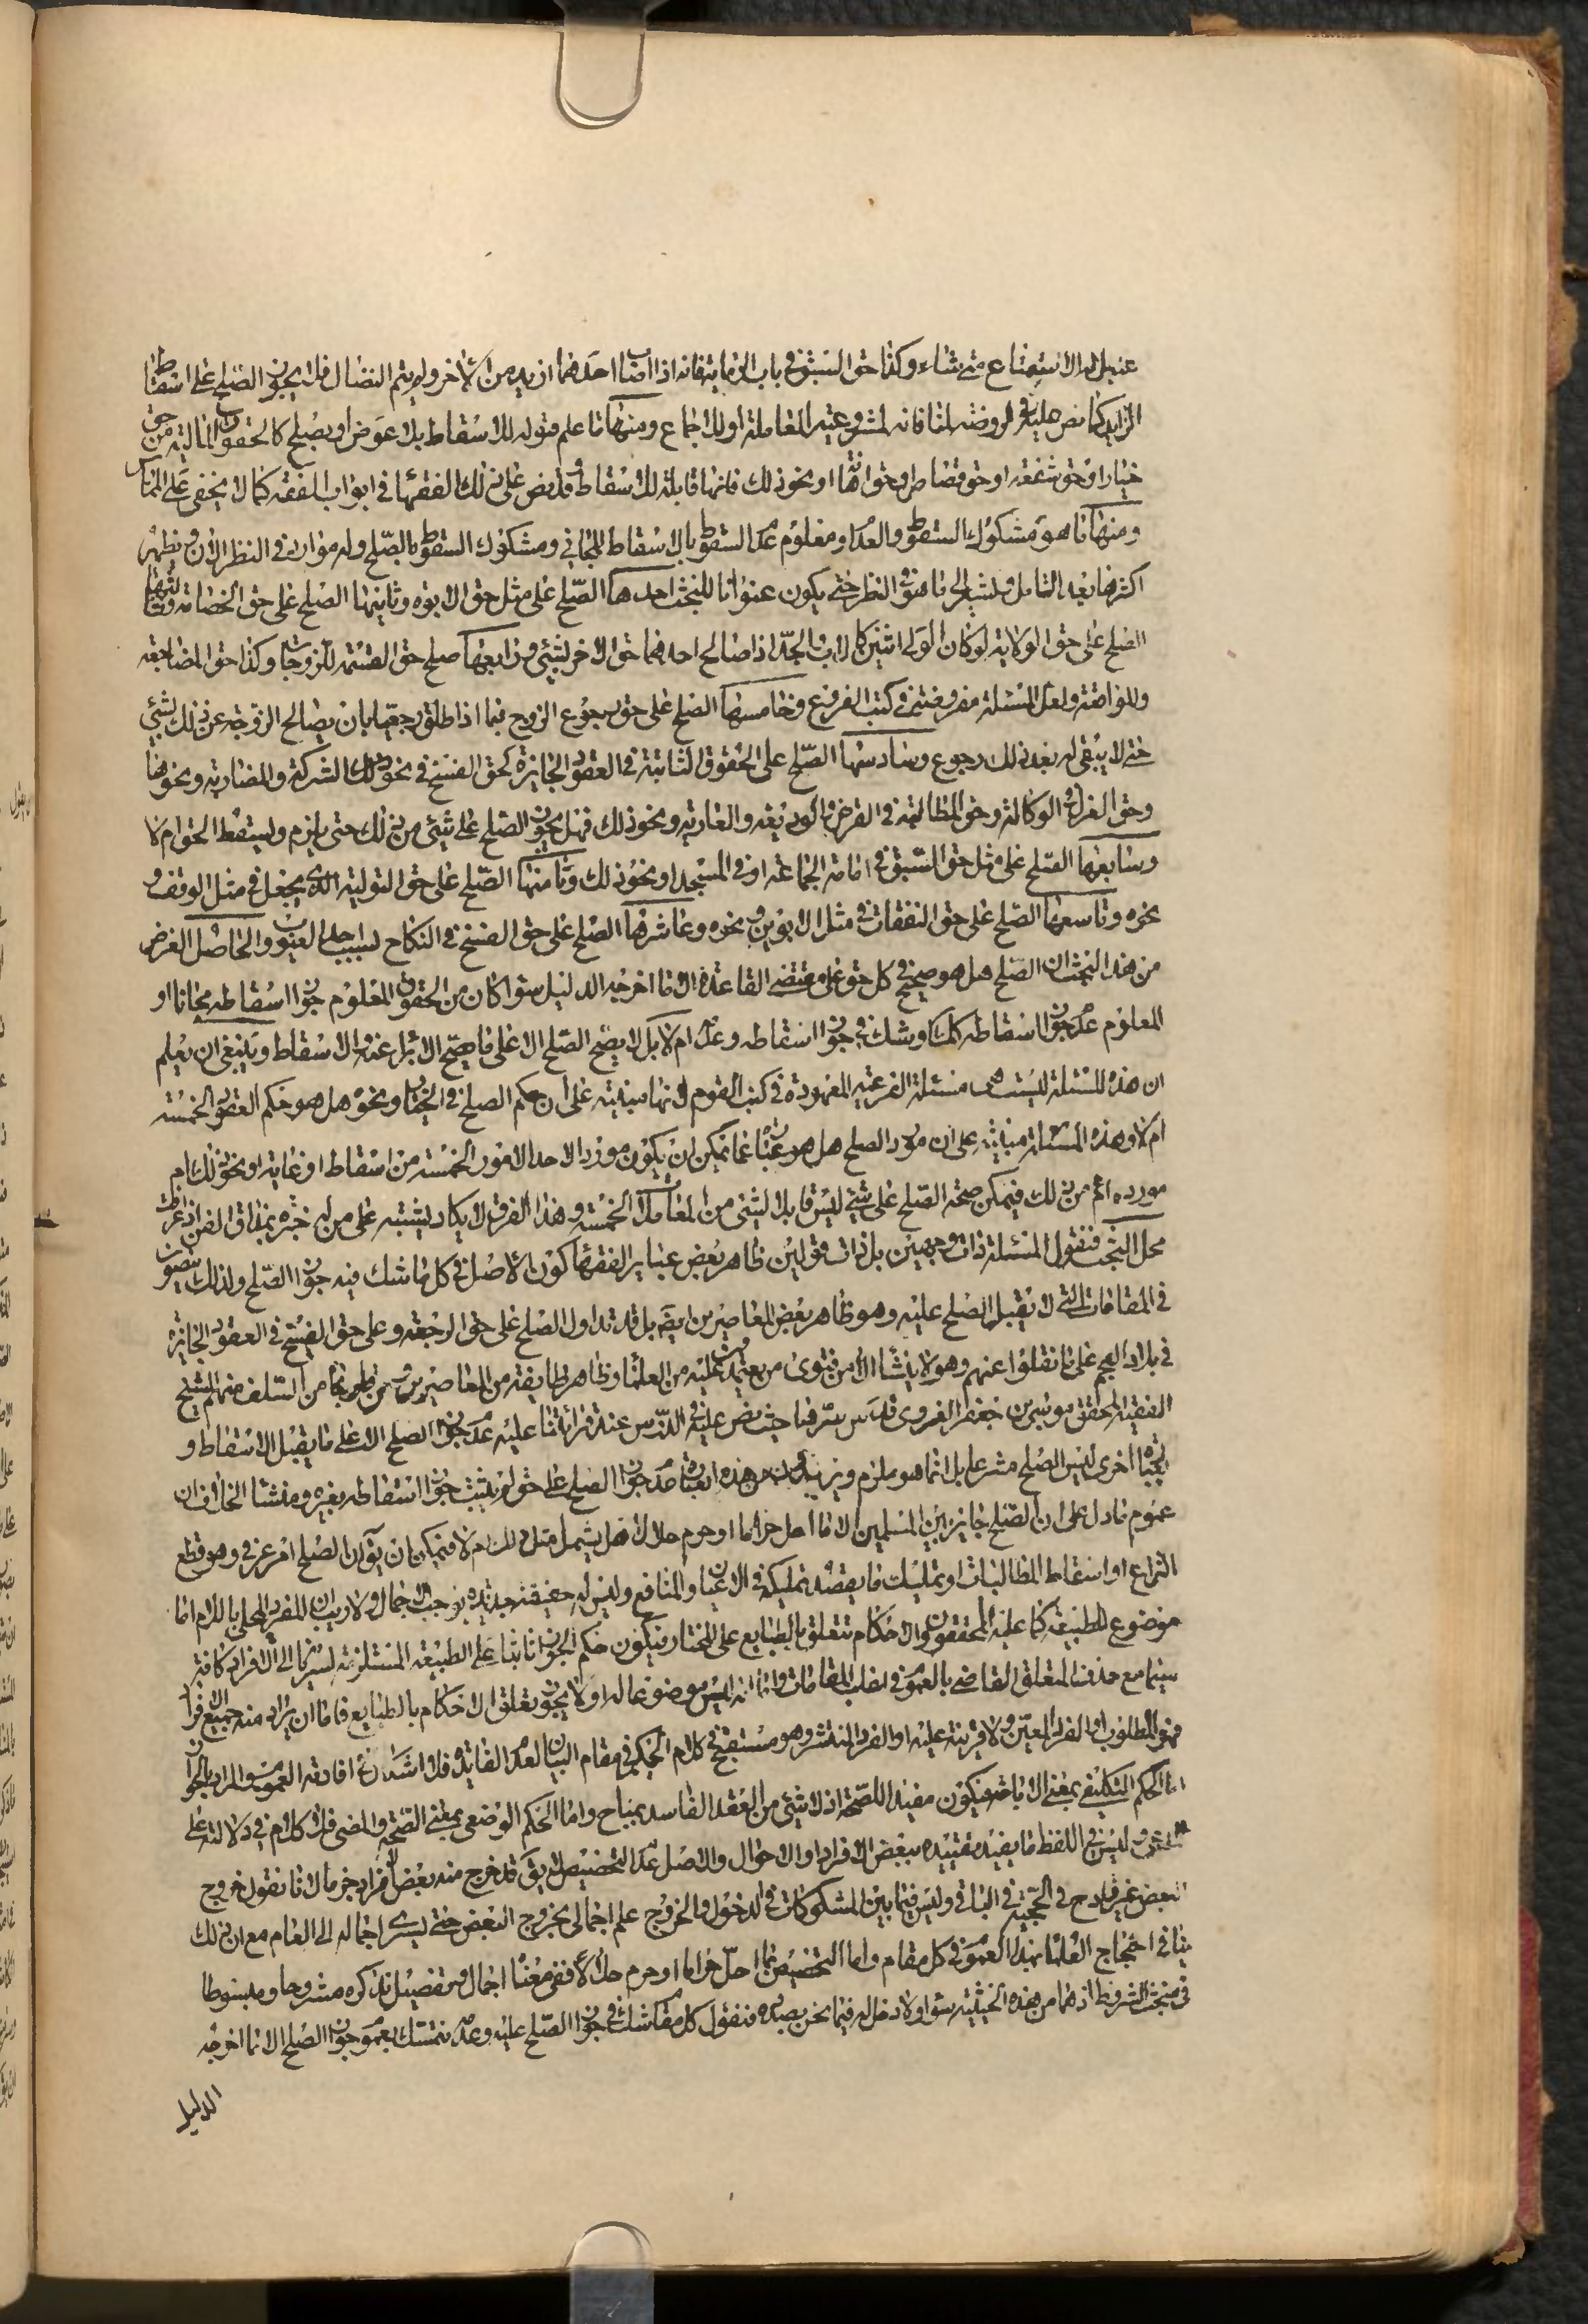 عنه بل له الاستمتاع متى شاء وكذا حق السبق في باب الرماية فانه اذا اصاب احدهما ازيد من الآخر ولم يتم النضال فلا يجوز الصلح على اسقاط
الزايد كما نص عليه في الروضة لمنافاته لمشروعية المعاملة او للاجماع ومنها ما علم قبوله للاسقاط بلا عوض او بصلح كالحقوق المالية من حق
خيار او حق شفعة او حق قصاص او حق او نحو ذلك فانها قابلة للاسقاط وقد نص على ذلك الفقهاء في ابواب الفقه كما لا يخفى على المتأمل
ومنها ما هو مشكوك السقوط والعدم او معلوم عدم السقوط بالاسقاط المجاني ومشكوك السقوط بالصلح وله موارد في النظر الان ويظهر
اكثرها بعد التامل ولنشر الى ما هو في النظر حتى يكون عنوانا للبحث احدها الصلح على مثل حق الابوة وثانيها الصلح على حق الحضانة وثالثها
الصلح على حق الولاية لو كان الولي اثنين كالاب والجد اذا صالح احدهما حق الاخر بشيء ورابعها صلح حق القسم للزوجات وكذا حق المضاجعة
والمواقعة ولعل المسئلة مفروضة في كتب الفروع وخامسها الصلح على حق رجوع الزوج فيما اذا طلق رجعيا بان يصالح الزوجة عن ذلك بشيء
حتى لا يبقى له بعد ذلك رجوع وسادسها الصلح على الحقوق الثابتة في العقود الجايزة كحق الفسخ في نحو ذلك الشركة والمضاربة ونحوهما
وحق العزل في الوكالة وحق المطالبة في القرض والوديعة والعارية ونحو ذلك فهل يجوز الصلح على شيء من ذلك حتى يلزم ويسقط الحق ام لا
وسابعها الصلح على مثل حق السبق في امامة الجماعة او في المسجد او نحو ذلك وثامنها الصلح على حق التولية الذي يجعل في مثل الوقف و
نحوه وتاسعها الصلح على حق النفقات في مثل الابوين ونحوه وعاشرها الصلح على حق الفسخ في النكاح لسبب احد العيوب والحاصل الغرض
من هذا البحث ان الصلح هل هو صحيح في كل حق على مقتضى القاعدة الا ما اخرجه الدليل سواء كان من الحقوق المعلوم جواز اسقاطه مجانا او
المعلوم عدم جواز اسقاطه كذلك او شك في جواز اسقاطه وعدمه ام لا بل لا يصح الصلح الا على ما يصح الابراء عنه والاسقاط وينبغي ان يعلم
ان هذه المسئلة ليست هي مسئلة الفرعية المعهودة في كتب القوم لانها مبنية على ان حكم الصلح في الخيار ونحوه هل هو حكم العقود الخمسة
ام لا وهذه المسئلة مبنية على ان مورد الصلح هل هو عبارة عما يمكن ان يكون موردا لاحد الامور الخمسة من اسقاط او عارية او نحو ذلك ام
مورده اعم من ذلك فيمكن صحة الصلح على شيء ليس قابلا لشيء من المعاملات الخمسة وهذا الفرق لا يكاد يشتبه على من له خبرة بمذاق الفن اذا عرفت
محل البحث فنقول المسئلة ذات وجهين بل ذات قولين ظاهر بعض عباير الفقهاء كون الاصل في كل ما شك فيه جواز الصلح ولذلك
في المقامات التي لا يقبل الصلح عليه وهو ظاهر بعض المعاصرين ايضا بل قد تداول الصلح على حق الرجعة وعلى حق الفسخ في العقود الجايزة
في بلاد العجم على ما نقلوا عنهم وهو لا ينشأ الا من فتوى من يعتمد عليه من العلماء وظاهر طايفة من المعاصرين ومن من السلف منهم الشيخ
الفقيه المحقق موسى بن جعفر الغروي قدس سرهما حيث نص عليه في الدرس عند قراءتنا عليه عدم جواز الصلح الا على ما يقبل الاسقاط و
بعبارة اخرى ليس الصلح مشرعا بل انما هو ملزم ويريدون من هذه العبارة عدم جواز الصلح على حق لم يثبت جواز اسقاطه بغيره ومنشأ الخلاف ان
عموم ما دل على ان الصلح جايز بين المسلمين الا ما احل حراما او حرم حلالا هل يشمل مثل ذلك ام لا فيمكن ان يق ان الصلح امر عرفي وهو قطع
النزاع او اسقاط المطالبات او تمليك ما يقصد تمليكه في الاعيان والمنافع وليس له حقيقة جديدة يوجب الاجمال ولا ريب ان المفرد المحلى باللام انما
موضوع للطبيعة كما عليه المحققون والاحكام تتعلق بالطبايع على المختار فيكون حكم الجواز ثابتا على الطبيعة المستلزمة لسريانه الى الافراد كافة
سيما مع حذف المتعلق القاضي بالعموم في اغلب المقامات واما انه ليس موضوعا له او لا يجوز تعلق الاحكام بالطبايع فاما ان يراد منه جميع الافراد
فهو المطلوب او الفرد المعين ولا قرينة عليه او الفرد المنتشر وهو مستقبح في كلام الحكيم في مقام البيان لعدم الفايدة فلا اشكال في افادته العموم والمراد بالجواز
اما الحكم التكليفي بمعنى الاباحة فيكون مفيدا للصحة اذ لا شيء من العقد الفاسد بمباح واما الحكم الوضعي بمعنى الصحة والمضي فلا كلام في دلالته على
وليس في اللفظ ما يفيد تقييده ببعض الافراد او الاحوال والاصل عدم التخصيص لا يق قد خرج منه بعض الافراد جزما لانا نقول خروج
البعض غير قادح في الحجية في الباقي وليس فيما بين المشكوكات في الدخول والخروج علم اجمالي بخروج البعض حتى يسري اجماله الى العام مع ان ذلك
ينافي احتجاج العلماء بهذا العموم في كل مقام واما التخصيص بما احل حراما او حرم حلالا ففي معناه اجمال وتفصيل نذكره مشروحا ومبسوطا
في مبحث الشروط اذ هما من هذه الحيثية سواء ولا دخل له فيما نحن بصدده فنقول كل مقام شك في جواز الصلح عليه وعدمه نتمسك بعموم جواز الصلح الا ما اخرجه
الدليل